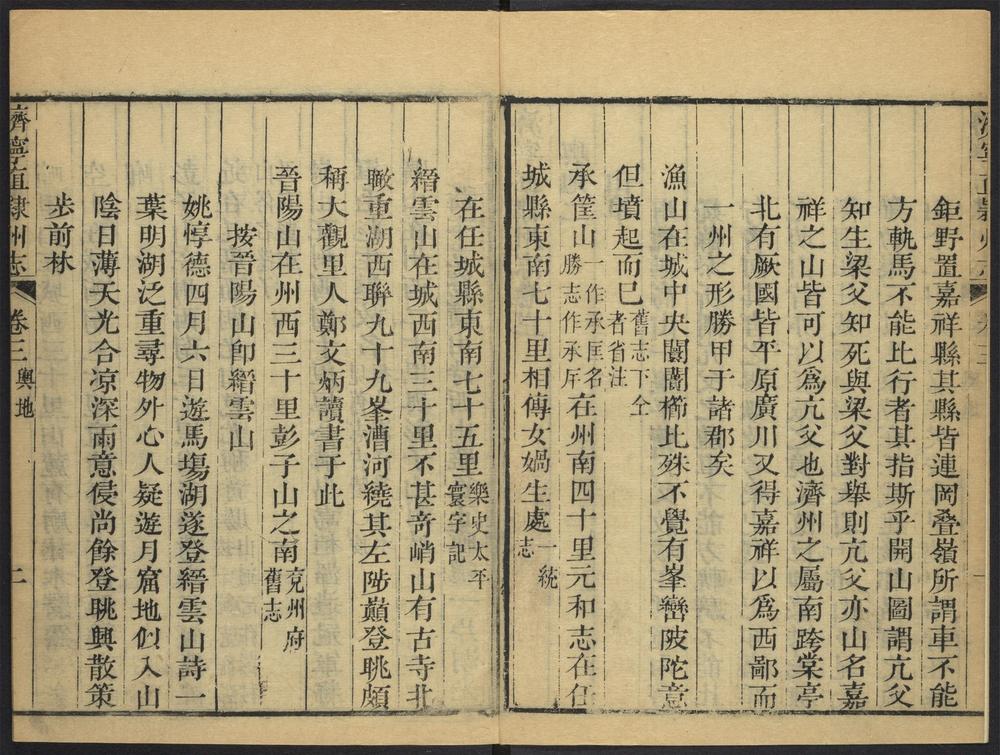 鉅野置嘉祥縣其縣皆連岡叠嶺所謂車不能
方軌馬不能比行者其指斯乎開山圖謂亢父
知生梁父知死與梁父對舉則亢父亦山名嘉
祥之山皆可以爲亢父也濟州之屬南跨棠亭
北有厥國皆平原廣川又得嘉祥以爲西鄙而
一州之形勝甲于諸郡矣
漁山在城中央闤闠櫛比殊不覺有峯巒陂陀意
但墳起而已舊志下仝者省注
承筐山一作承匡名勝志作承斥在州南四十里元和志在任
城縣東南七十里相傳女媧生處一統志
在任城縣東南七十五里樂史太平寰宇記
縉雲山在城西南三十里不甚竒峭山有古寺北
瞰重湖西聯九十九峯漕河繞其左陟巔登眺頗
稱大觀里人鄭文炳讀書于此
晉陽山在州西三十里彭子山之南兗州府舊志
按晉陽山卽縉雲山
姚惇德四月六日遊馬塲湖遂登縉雲山詩一
葉明湖泛重尋物外心人疑遊月窟地似入山
陰日薄天光合凉深雨意侵尚餘登眺興散策
步前林
濟寧直隸州志
卷三 輿地
二